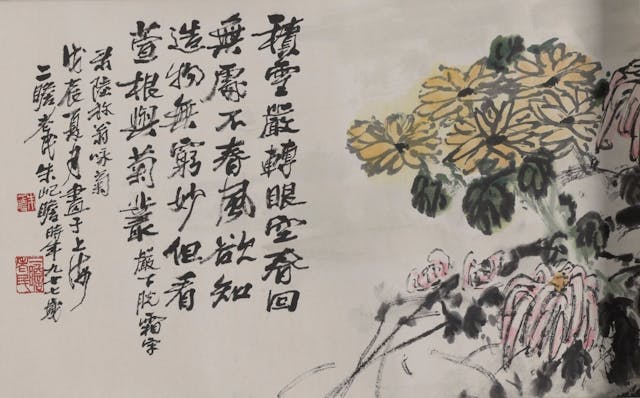 積雪嚴轉眼空春回
無處不春風欲知
造物無窮妙但看
萱根與菊叢 嚴下脫霜字
陸放翁咏菊
戊辰夏月畫于上海
二瞻老民朱屺瞻時年九十七歲